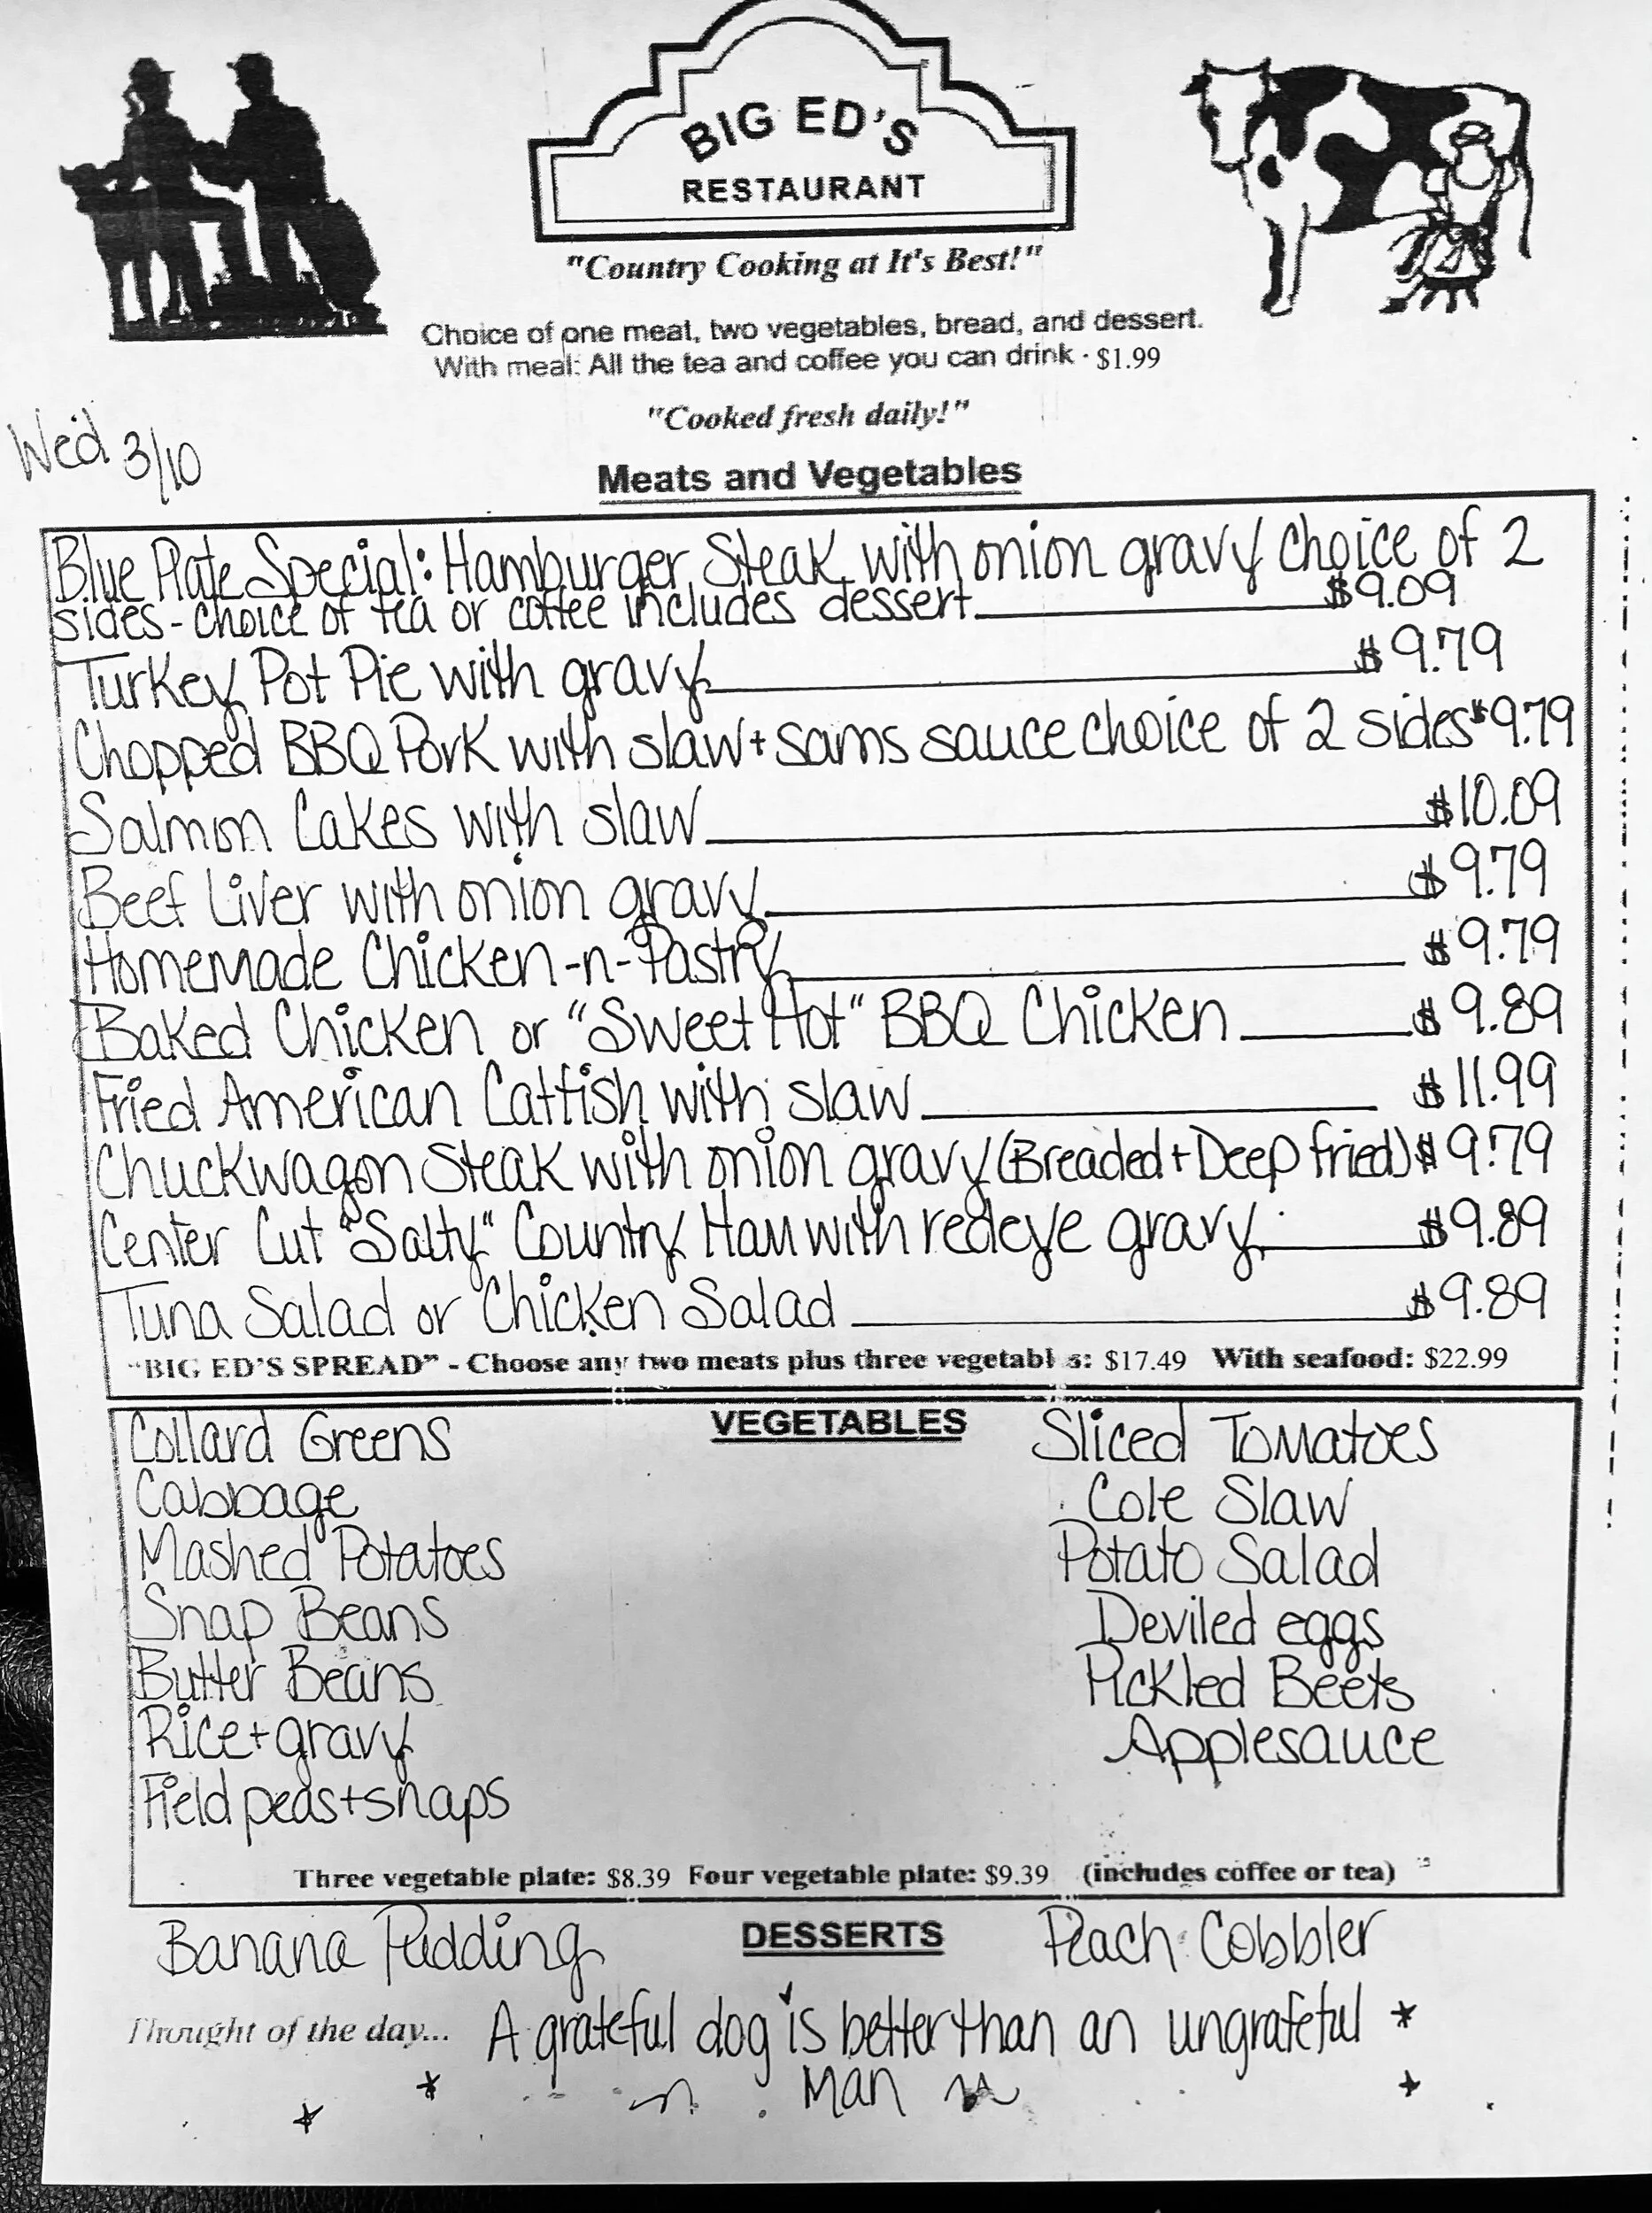 BIG ED'S
RESTAURANT
"Country Cooking at It's Best!"
Choice of one meat, two vegetables, bread, and dessert.
With meal: All the tea and coffee you can drink · $1.99
"Cooked fresh daily!"
Wed 3/10
Meats and Vegetables
Blue Plate Special: Hamburger Steak with onion gravy choice of 2
sides - choice of tea or coffee includes dessert $9.09
Turkey Pot Pie with gravy $9.79
Chopped BBQ Pork with slaw + sams sauce choice of 2 sides $9.79
Salmon Cakes with slaw $10.09
Beef Liver with onion gravy $9.79
Homemade Chicken-n-Pastry $9.79
Baked Chicken or "Sweet Hot" BBQ Chicken $9.89
Fried American Catfish with slaw $11.99
Chuckwagon Steak with onion gravy (Breaded + Deep fried) $9.79
Center Cut "Salty" Country Ham with redeye gravy $9.89
Tuna Salad or Chicken Salad $9.89
"BIG ED'S SPREAD" - Choose any two meats plus three vegetabl s: $17.49 With seafood: $22.99
VEGETABLES
Collard Greens
Cabbage
Mashed Potatoes
Snap Beans
Butter Beans
Rice + gravy
Field peas + snaps
Sliced Tomatoes
Cole Slaw
Potato Salad
Deviled eggs
Pickled Beets
Applesauce
Three vegetable plate: $8.39 Four vegetable plate: $9.39 (includes coffee or tea)
DESSERTS
Banana Pudding
Peach Cobbler
Thought of the day... A grateful dog is better than an ungrateful
Man